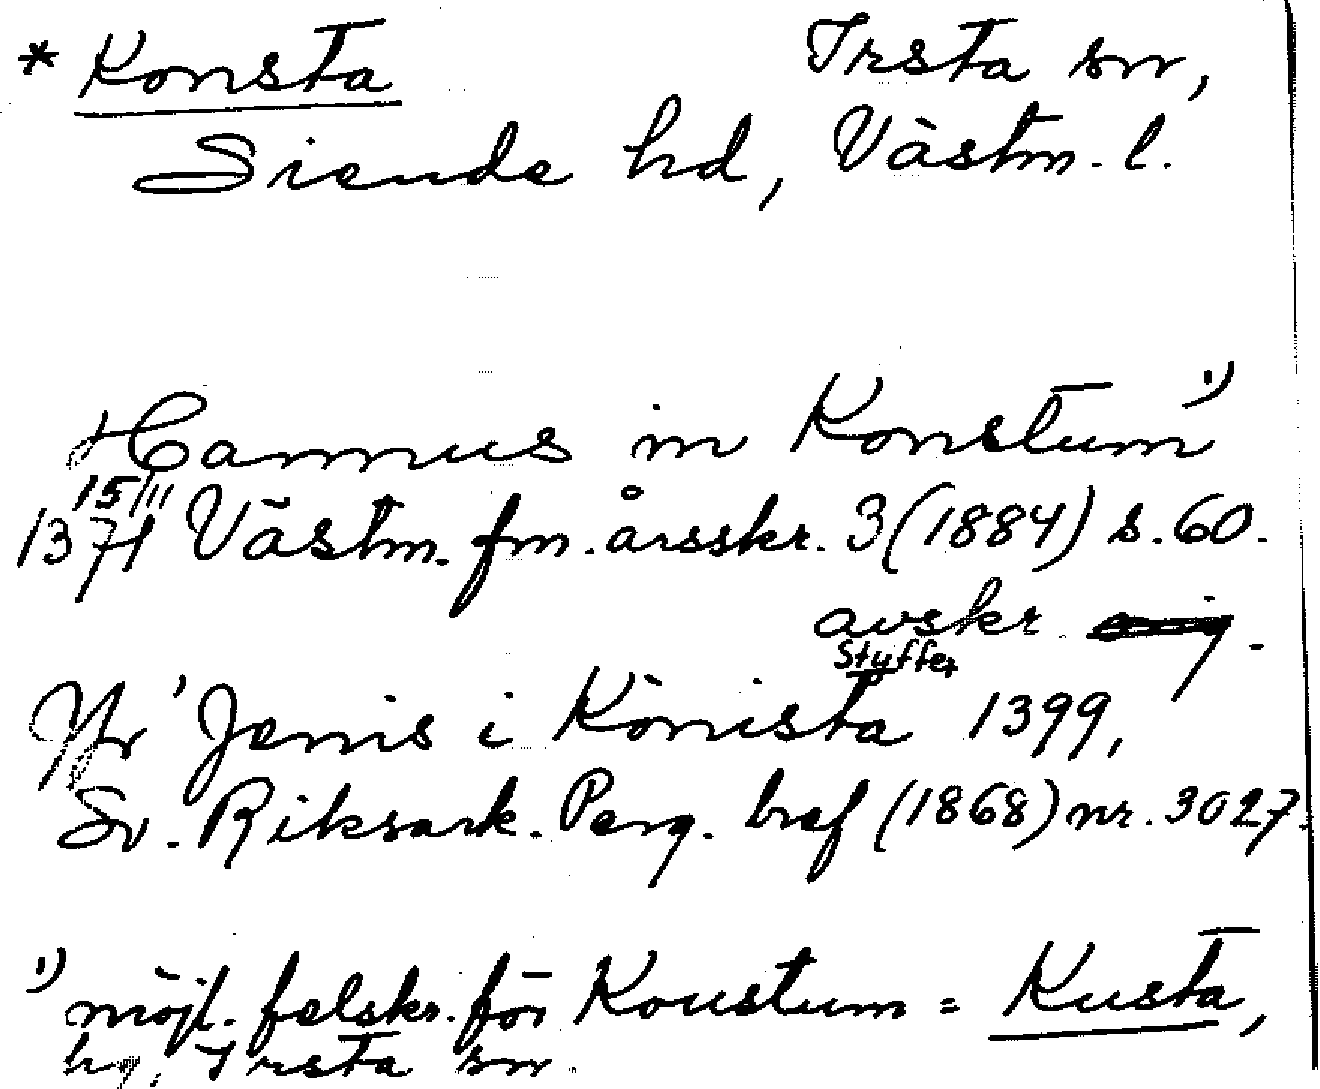 * Konsta Irsta sn,
Siende hd, Västm. l.
Hannus in Konstum 1)
15/11
1371 Västm. fm. årsskr. 3 (1884) s. 60.
avskr.
Styffe
Jönis i Könista 1399,
Sv. Riksark. Perg. bref (1868) nr. 3027.
1) möjl. felskr. för Koustum = Kusta,
hg, Irsta sn.